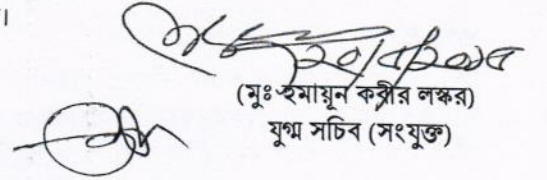 ।
(মুঃ হুমায়ূন কবীর লস্কর)
যুগ্ম সচিব (সংযুক্ত)